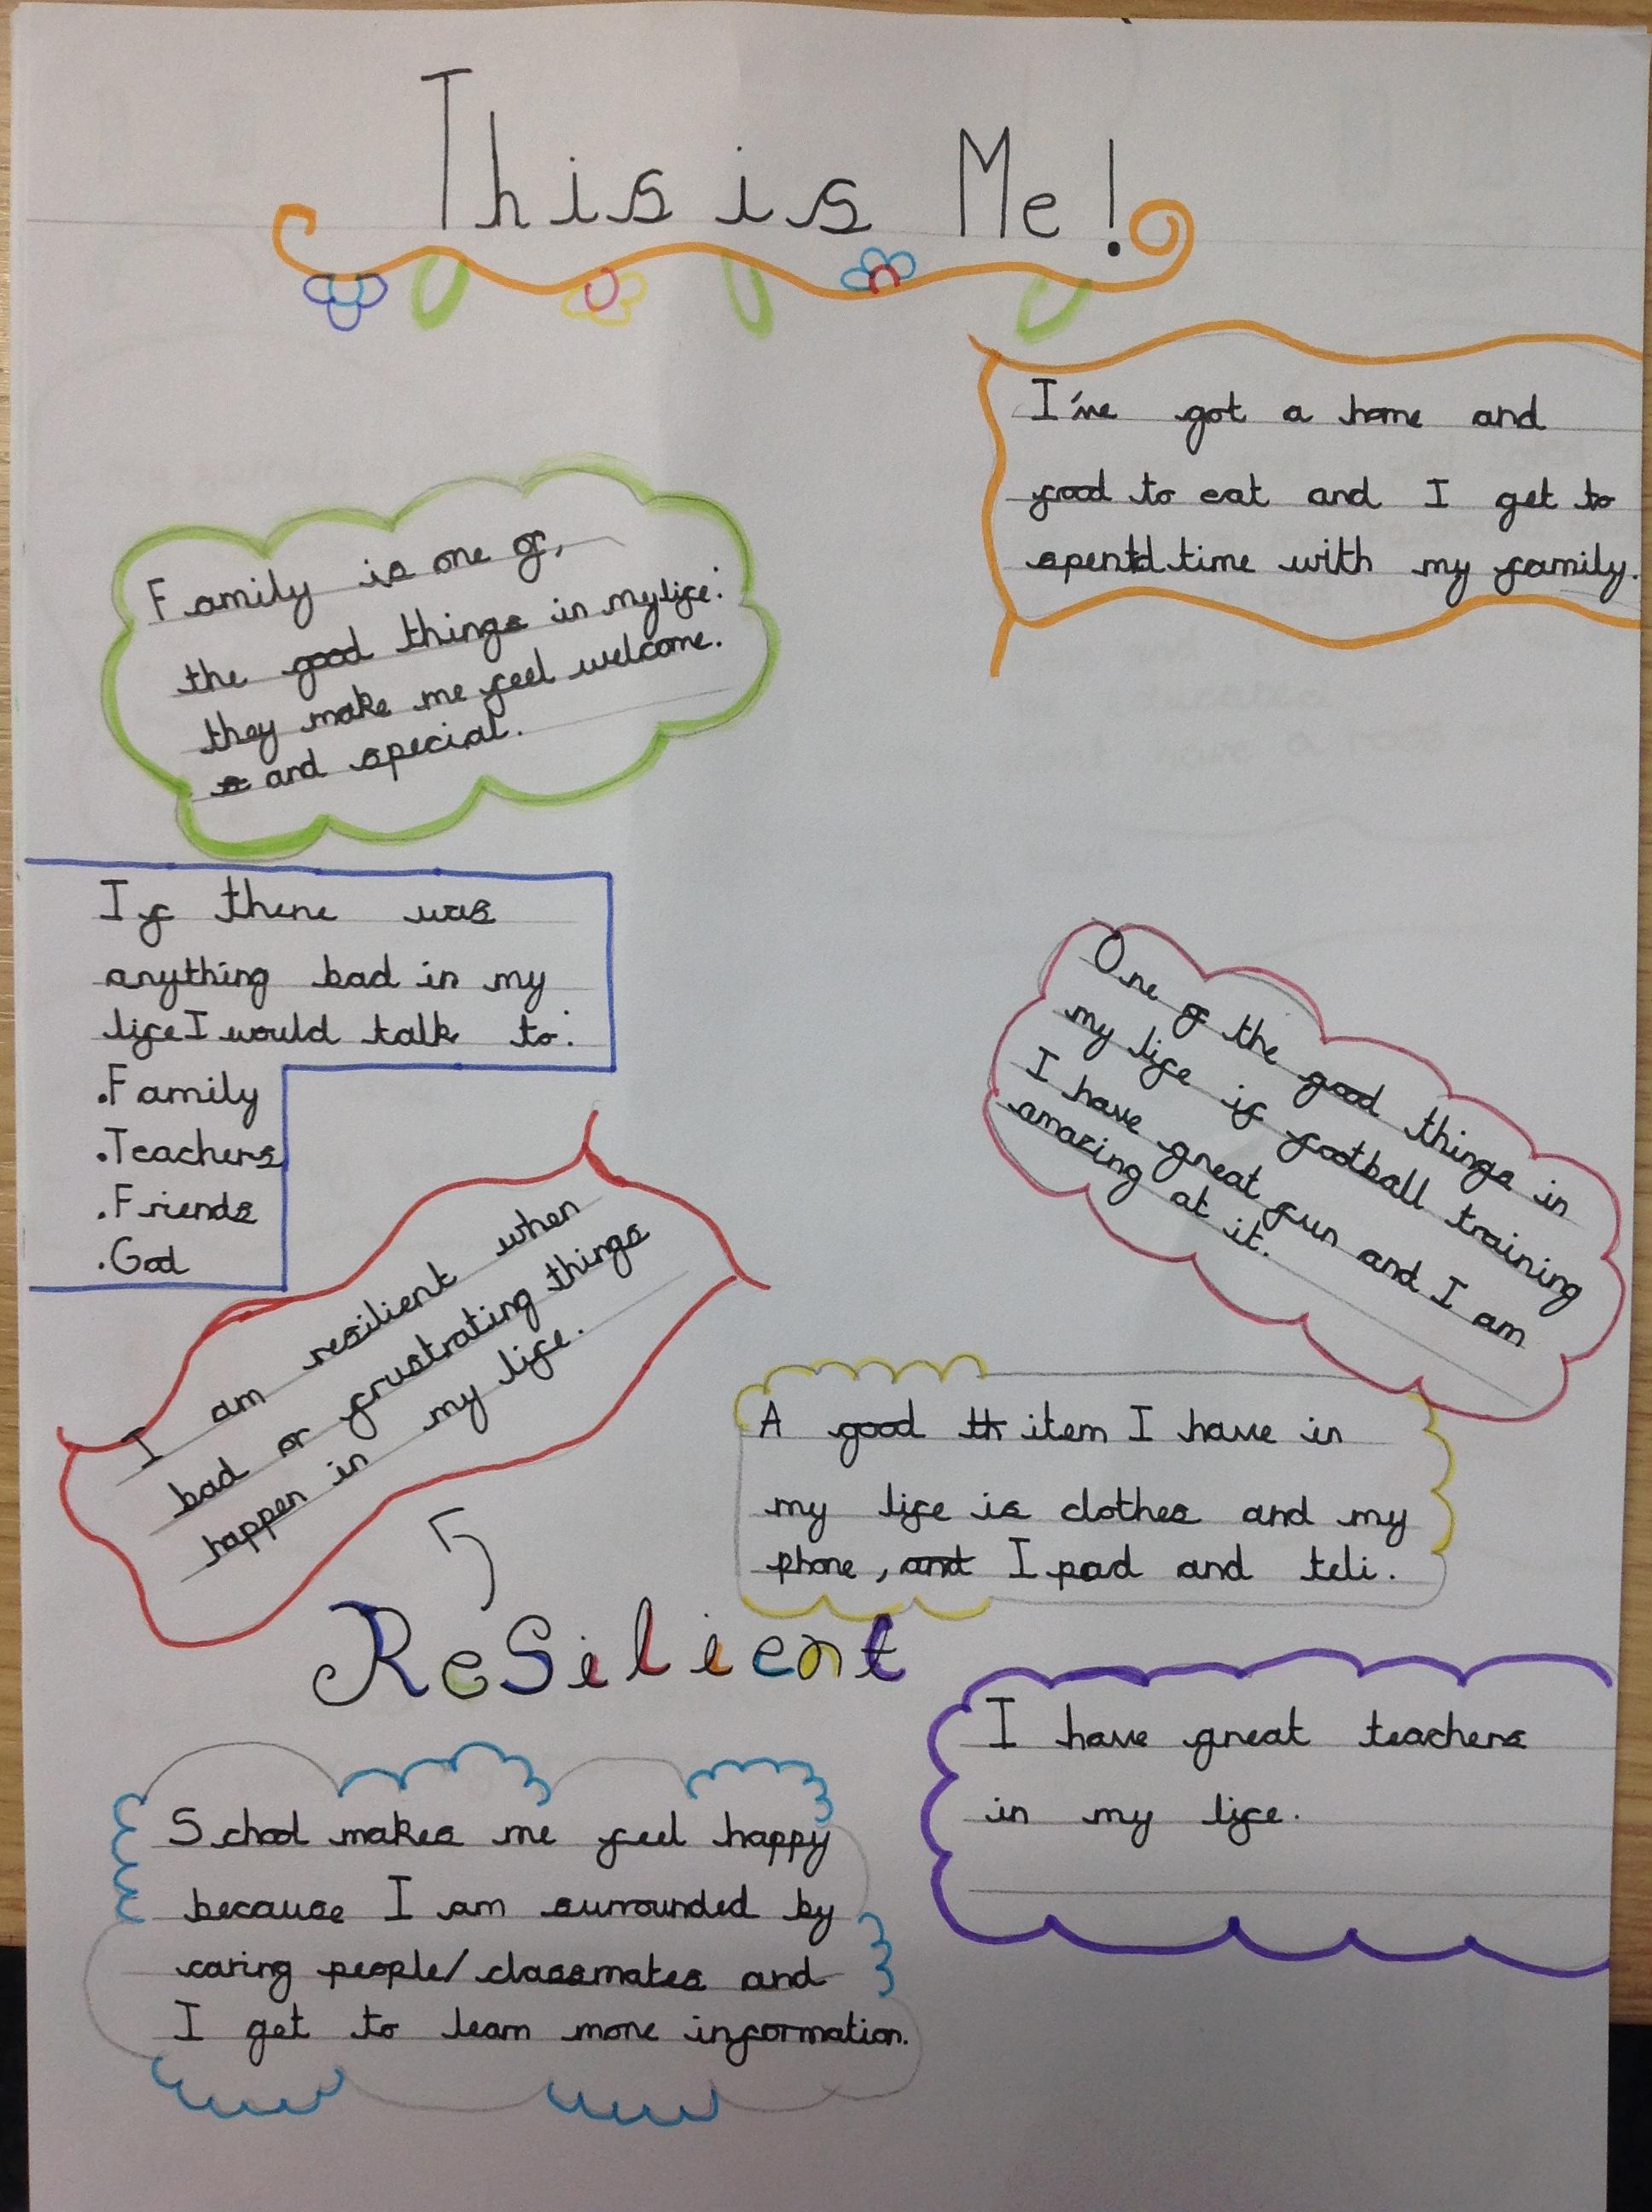 This is Me!
I've got a home and
food to eat and I get to
spentd time with my family.
Family is one of,
the good things in my life:
they make me feel welcome.
and special.
If there was
anything bad in my
life I would talk to:
.Family
.Teachers
.Friends
.God
One of the good things in
my life is football training
I have great fun and I am
amazing at it.
I am resilient when
bad or frustrating things
happen in my life.
A good th item I have in
my life is clothes and my
phone, and I pad and teli.
ReSilient
I have great teachers
in my life.
School makes me feel happy
because I am surrounded by
caring people/classmates and
I get to learn more information.